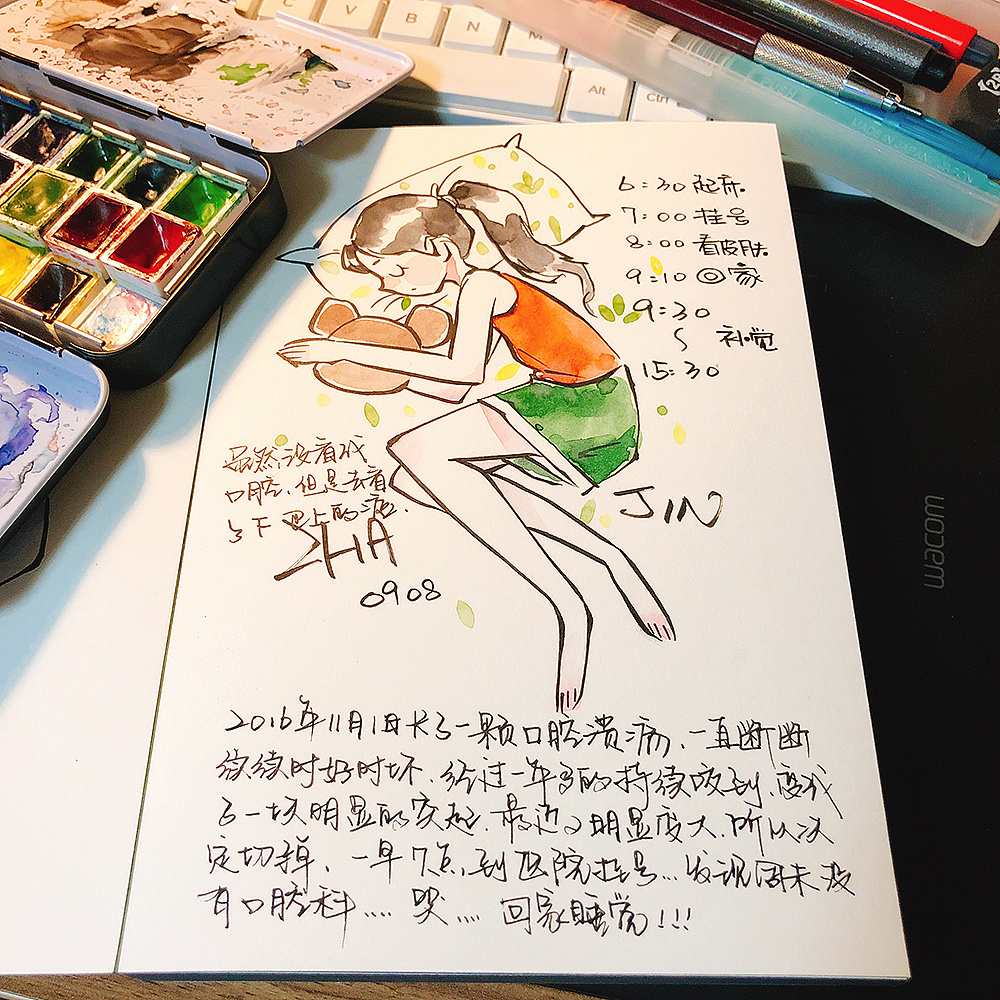 C V B N
Alt
Ctrl
MADE IN JAPAN
6:30 起床.
7:00 挂号
8:00 看皮肤.
9:10 回家
9:30
~ 补觉
15:30
虽然没看成
口腔,但是去看
了下巴上的痘.
JIN
ZHA
0908
wacom
2016年11月1日长了一颗口腔溃疡,一直断断
续续时好时坏,经过一年多的持续咬到,变成
了一块明显的突起,最近又明显变大,所以决
定切掉,一早7点到医院挂号...发现周末没
有口腔科....哭....回家睡觉!!!